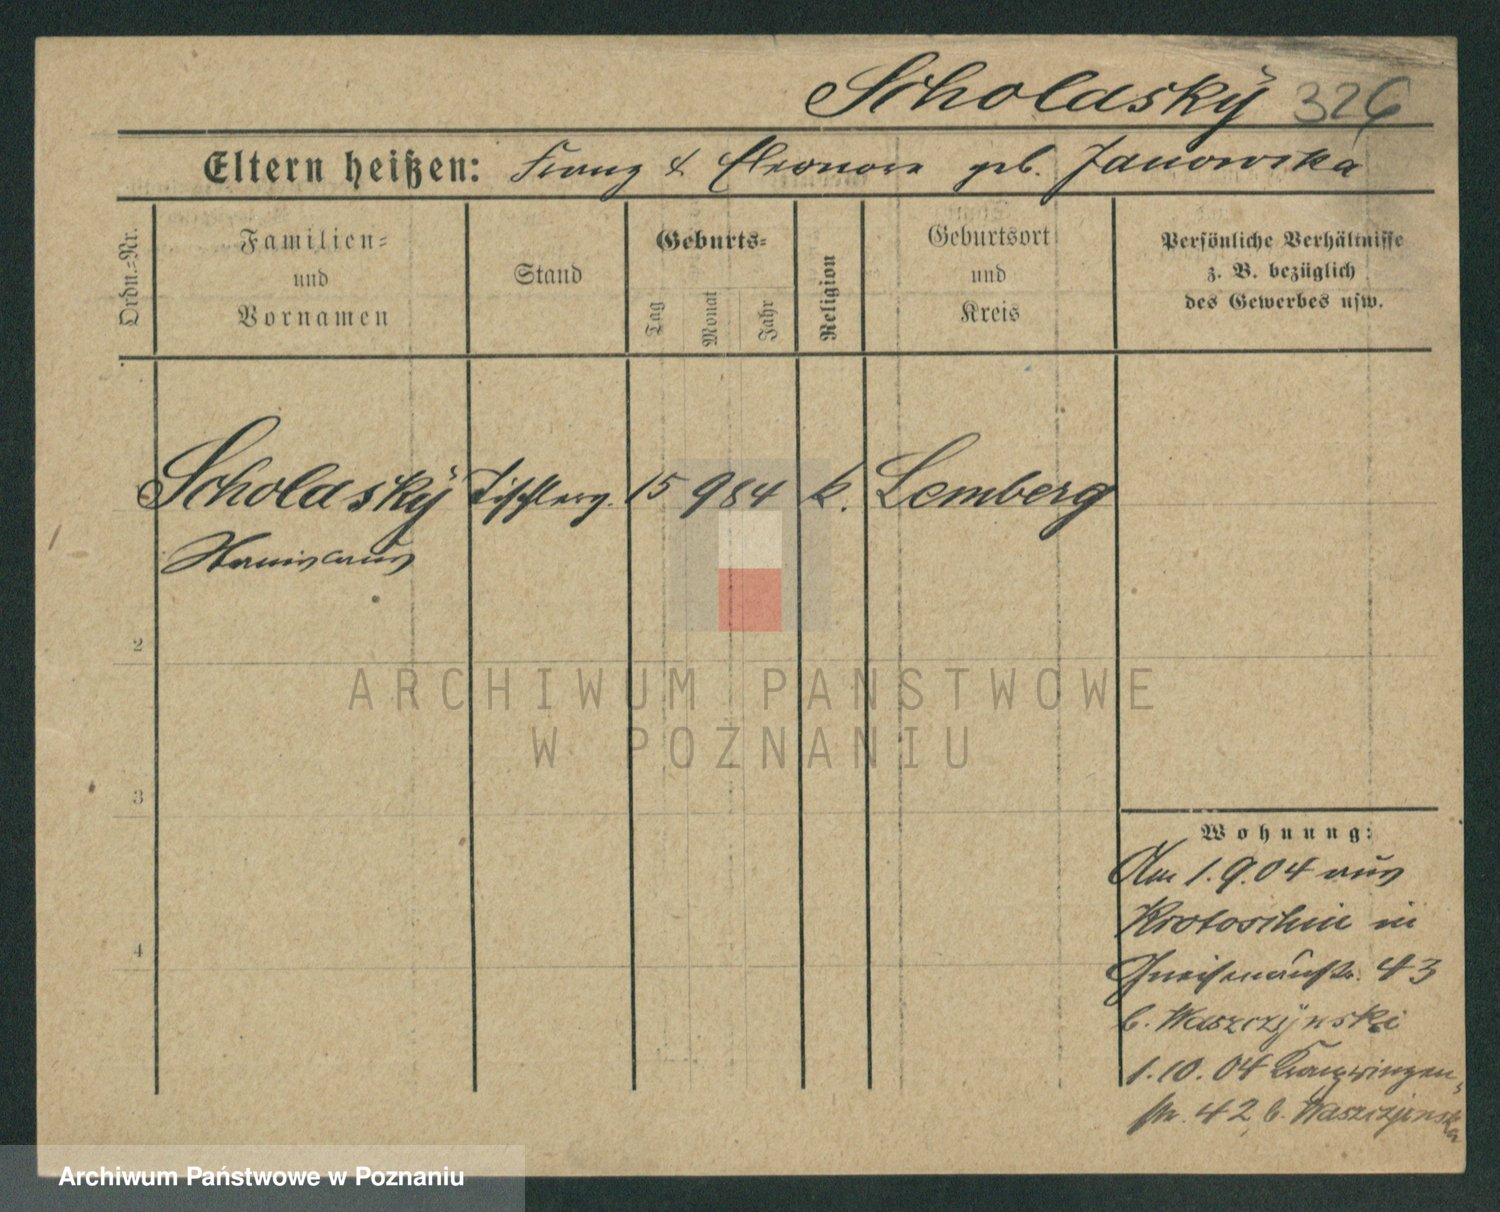 Scholaskÿ 326
Eltern heißen: Franz & Eleonore geb. Janowska
Ordn.=Nr.
Familien=
und
Vornamen
Stand
Geburts=
Tag
Monat
Jahr
Religion
Geburtsort
und
Kreis
Persönliche Verhältnisse
z. B. bezüglich
des Gewerbes usw.
Scholaskÿ Tischlerg. 15 9 84 k. Lemberg
Hermann
2
3
4
Wohnung:
Am 1.9.04 aus
Krotoschin in
Gneisenaustr. 43
b. Waszczÿnski
1.10.04 Kronprinzen-
str. 42, b. Waszczÿnska
ARCHIWUM PAŃSTWOWE
W POZNANIU
Archiwum Państwowe w Poznaniu